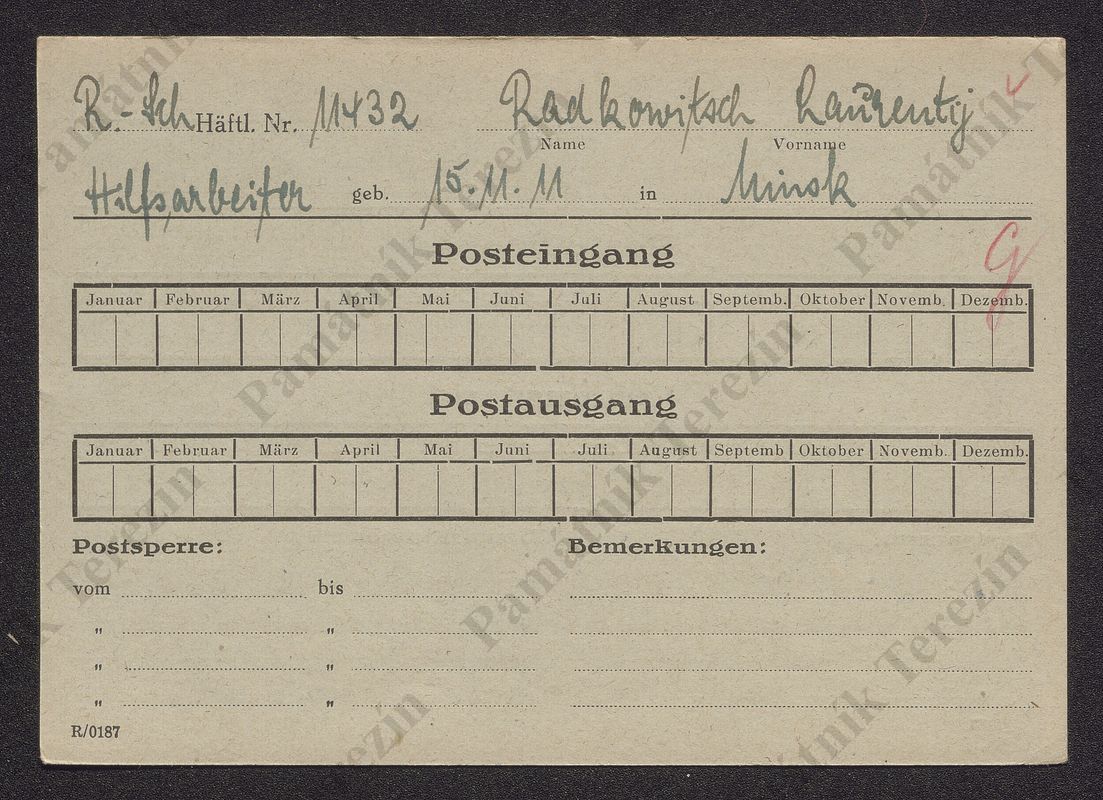 R.-Sch Häftl. Nr. 11432 Radkowitsch Laurentij
Name Vorname
Hilfsarbeiter geb. 15.11.11 in Minsk
Posteingang
Januar Februar März April Mai Juni Juli August Septemb. Oktober Novemb. Dezemb.
Postausgang
Januar Februar März April Mai Juni Juli August Septemb Oktober Novemb. Dezemb.
Postsperre: Bemerkungen:
vom bis
" "
" "
" "
R/0187
Památník Terezín